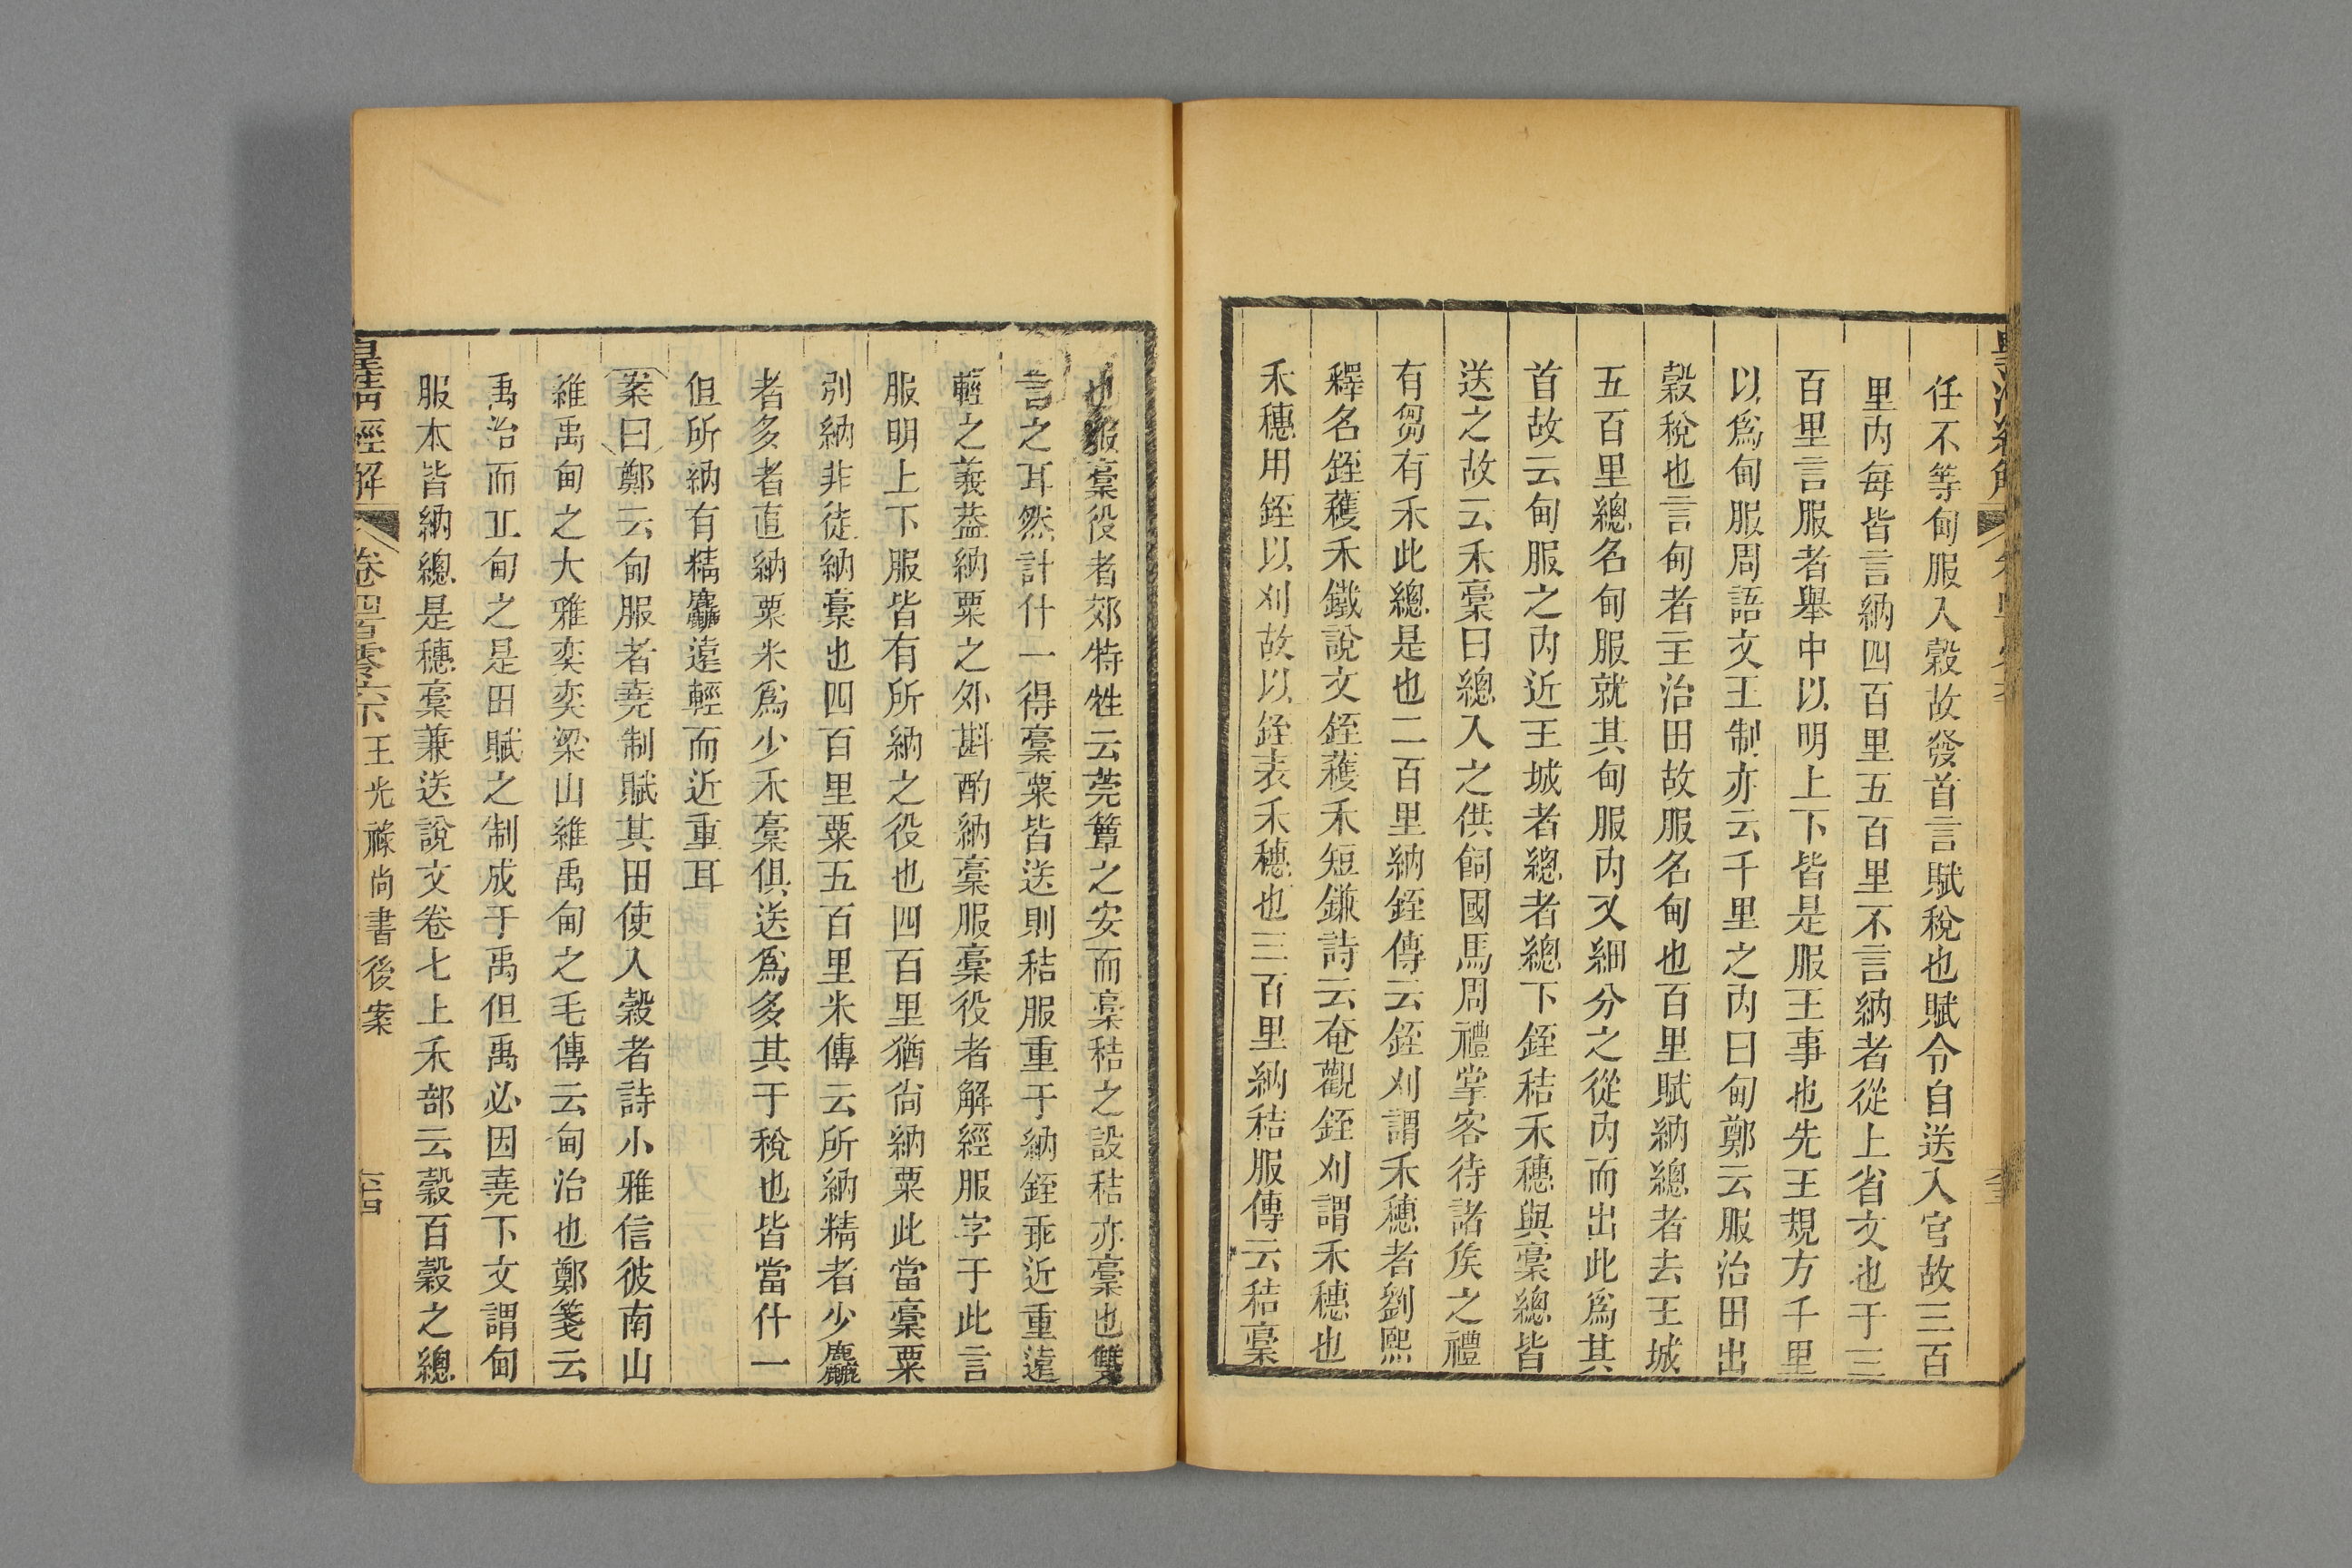 任不等甸服入穀故發首言賦稅也賦令自送入官故三百
里內每皆言納四百里五百里不言納者從上省文也于三
百里言服者舉中以明上下皆是服王事也先王規方千里
以爲甸服周語文王制亦云千里之內曰甸鄭云服治田出
穀稅也言甸者主治田故服名甸也百里賦納總者去王城
五百里總名甸服就其甸服內又細分之從內而出此爲其
首故云甸服之內近王城者總者總下銍秸禾穗與稾總皆
送之故云禾稾曰總入之供飼國馬周禮掌客待諸矦之禮
有芻有禾此總是也二百里納銍傳云銍刈謂禾穗者劉熙
釋名銍穫禾鐵說文銍穫禾短鎌詩云奄觀銍刈謂禾穗也
禾穗用銍以刈故以銍表禾穗也三百里納秸服傳云秸稾
也服稾役者郊特牲云莞簟之安而稾秸之設秸亦稾也雙
言之耳然計什一得稾粟皆送則秸服重于納銍乖近重遠
輕之義蓋納粟之外斟酌納稾服稾役者解經服字于此言
服明上下服皆有所納之役也四百里猶尙納粟此當稾粟
別納非徒納稾也四百里粟五百里米傳云所納精者少麤
者多者直納粟米爲少禾稾俱送爲多其于稅也皆當什一
但所納有精麤遠輕而近重耳
案曰鄭云甸服者堯制賦其田使入穀者詩小雅信彼南山
維禹甸之大雅奕奕梁山維禹甸之毛傳云甸治也鄭箋云
禹治而丘甸之是田賦之制成于禹但禹必因堯下文謂甸
服本皆納總是穗稾兼送說文卷七上禾部云穀百穀之總
皇淸經解 卷四百零六下王光祿尙書後案 六十四